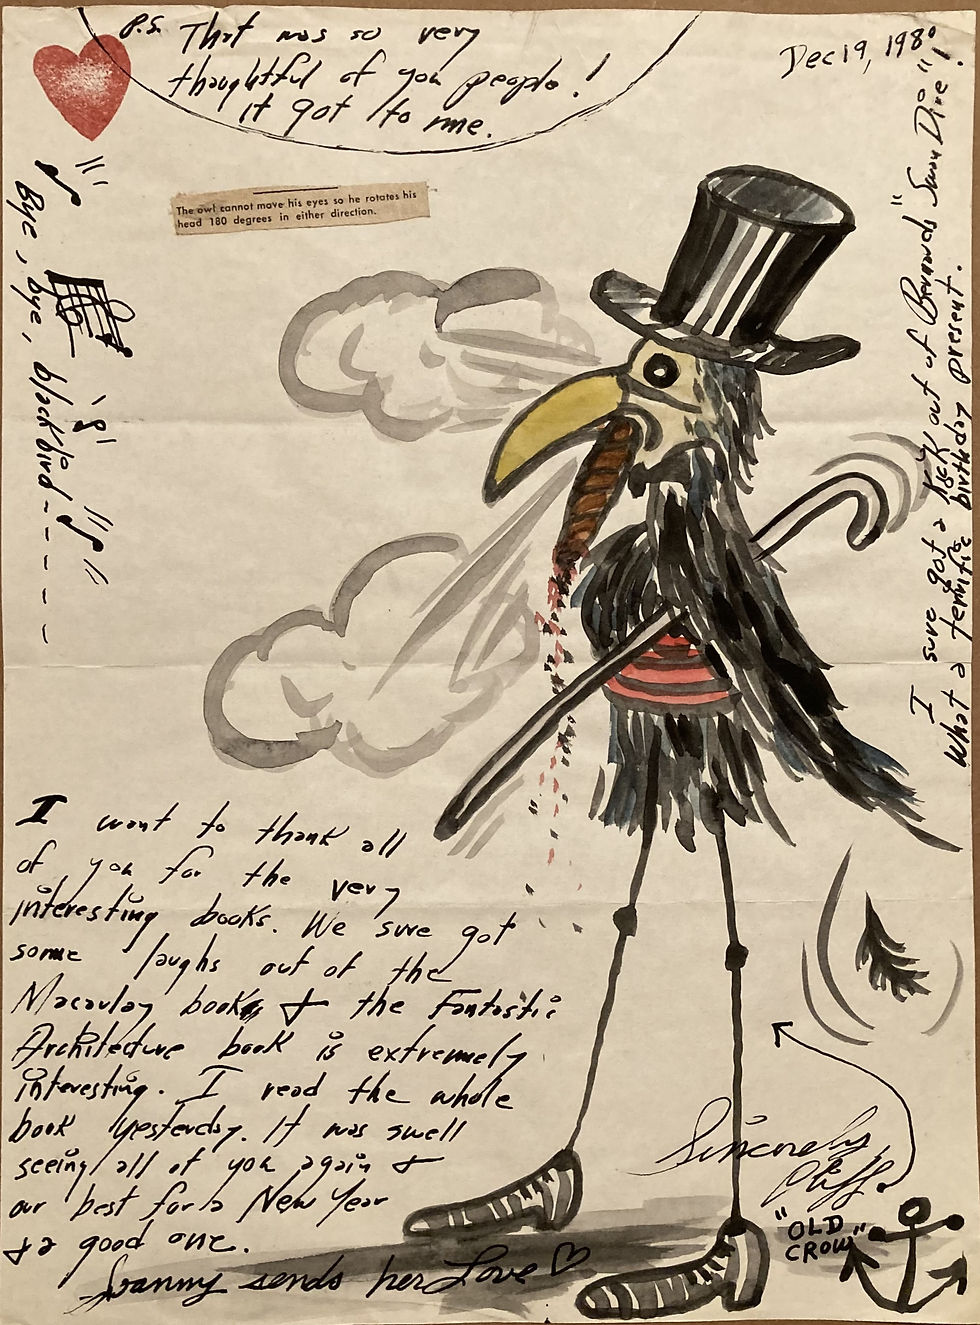 P.S. That was so very
thoughtful of you people!
it got to me.
Dec 19, 1980
The owl cannot move his eyes so he rotates his
head 180 degrees in either direction.
Bye, bye, blackbird - - - - -
I sure got a kick out of Bernards "Swan Dive"!
What a terrific birthday present.
I want to thank all
of you for the very
interesting books. We sure got
some laughs out of the
Macaulay books & the Fantastic
Architecture book is extremely
interesting. I read the whole
book yesterday. It was swell
seeing all of you again &
our best for a New Year
& a good one.
Sincerely
Cliff.
"OLD
CROW"
sends her Love